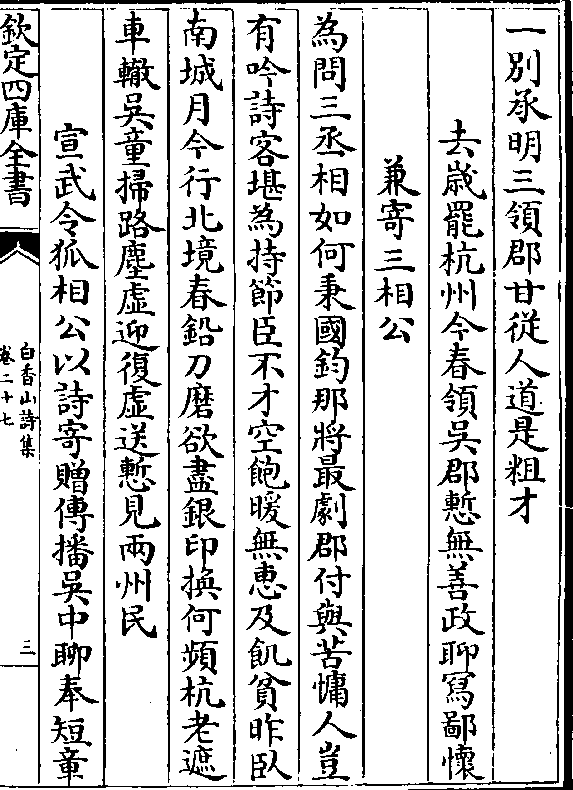 一別承明三領郡甘從人道是粗才
去歲罷杭州今春領吳郡慙無善政聊寫鄙懷
兼寄三相公
為問三丞相如何秉國鈞那將最劇郡付與苦慵人豈
有吟詩客堪為持節臣不才空飽暖無惠及飢貧昨臥
南城月今行北境春鉛刀磨欲盡銀印換何頻杭老遮
車轍吳童掃路塵虛迎復虛送慙見兩州民
宣武令狐相公以詩寄贈傳播吳中聊奉短章
欽定四庫全書
白香山詩集
卷二十七
三